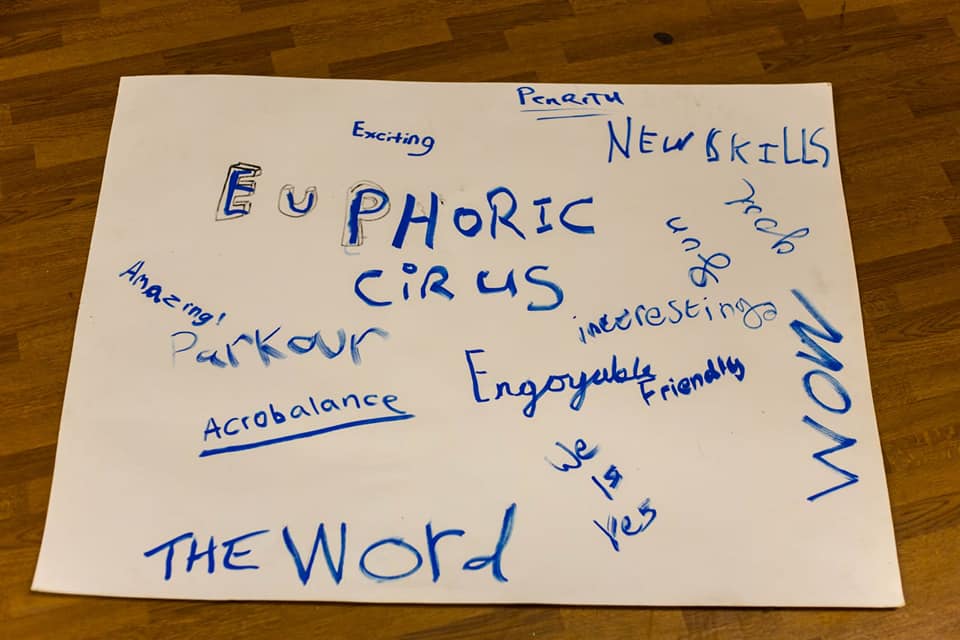 PenRiTH
Exciting
NEW SKILLS
EuPHORIC
CiRUS
fun
Amazing!
interesting
Parkour
WOW
Engoyable
Friendly
Acrobalance
We
Is
Yes
THE Word